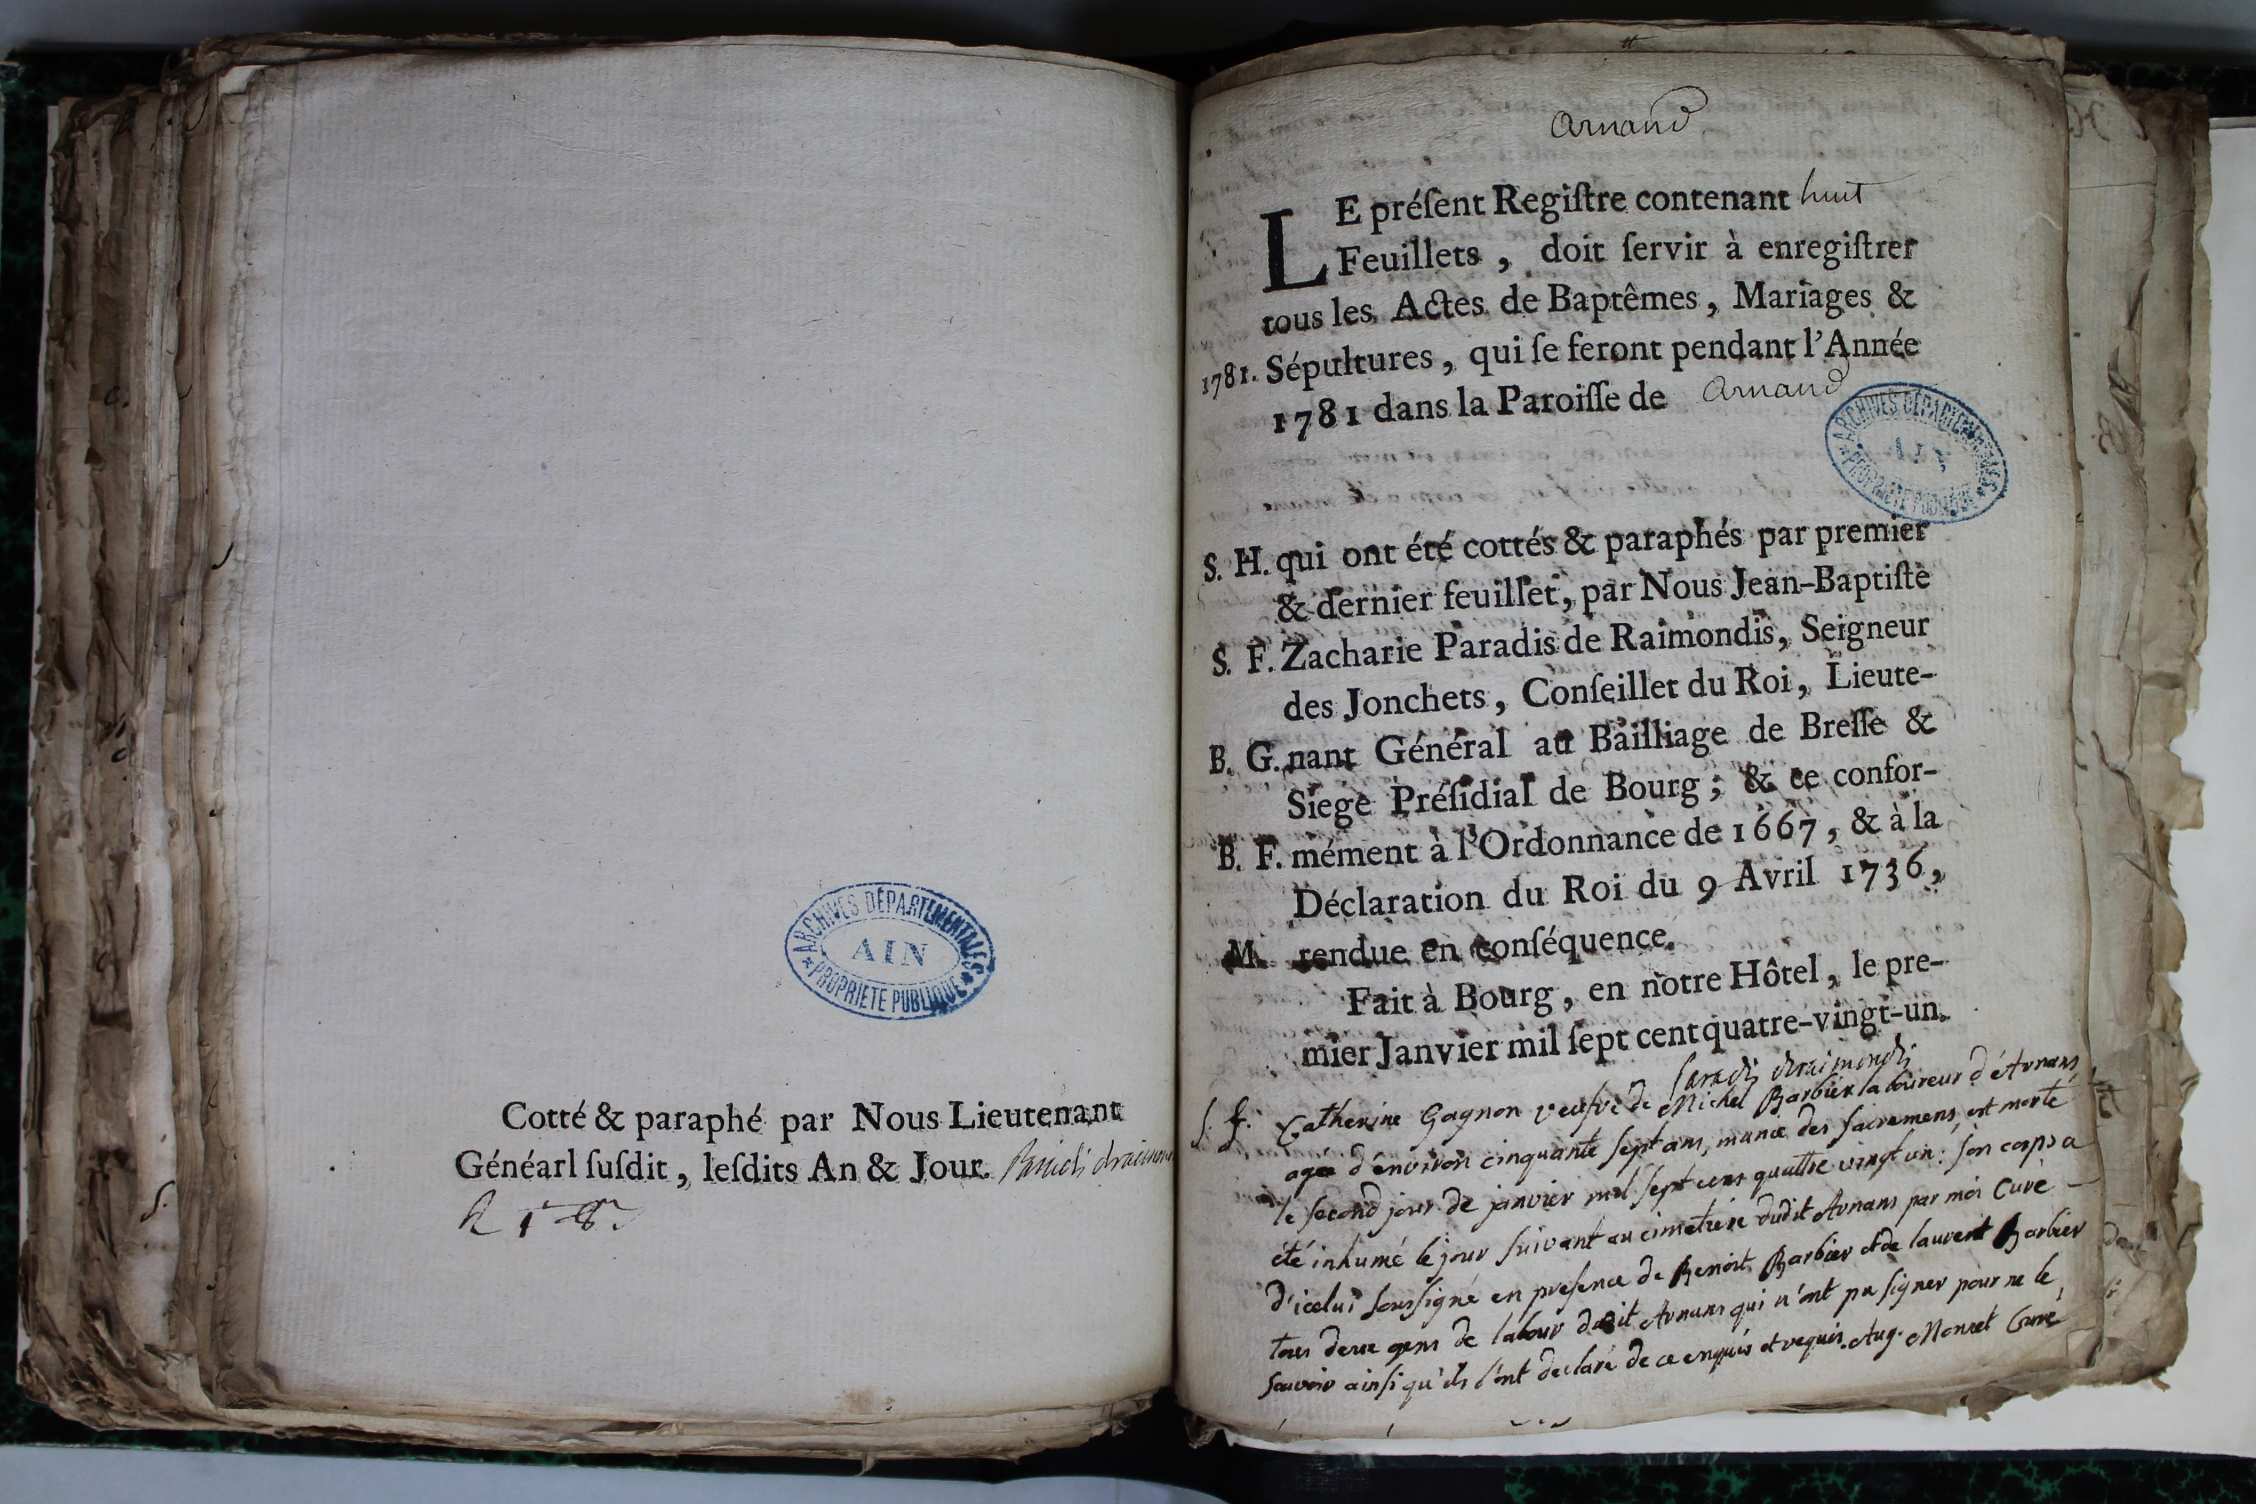 ARCHIVES DÉPARTEMENTALES
AIN
PROPRIETE PUBLIQUE
Cotté & paraphé par Nous Lieutenant
Généarl ſuſdit, leſdits An & Jour.
Arnand
LE préſent Regiſtre contenant huit
Feuillets, doit ſervir à enregiſtrer
tous les Actes de Baptêmes, Mariages &
1781. Sépultures, qui ſe feront pendant l'Année
1781 dans la Paroiſſe de Arnand
ARCHIVES DÉPARTEMENTALES
AIN
PROPRIETE PUBLIQUE
S. H. qui ont été cottés & paraphés par premier
& dernier feuillet, par Nous Jean-Baptiſte
S. F. Zacharie Paradis de Raimondis, Seigneur
des Jonchets, Conſeillet du Roi, Lieute-
B. G. nant Général au Bailliage de Breſſe &
Siege Préſidial de Bourg; & ce confor-
B. F. mément à l'Ordonnance de 1667, & à la
Déclaration du Roi du 9 Avril 1736,
M. rendue en conſéquence.
Fait à Bourg, en notre Hôtel, le pre-
mier Janvier mil ſept cent quatre-vingt-un.
Paradis deraimondis
S. f. Catherine Gagnon veufve de Michel Barbier laboureur d'Arnans,
agée d'environ cinquante sept ans, munie des sacremens, est morte
le second jour de janvier mil sept cens quattre vingt un: son corps a
été inhumé le jour suivant au cimetiere dudit Arnans par moi Curé
d'icelui soussigné en presence de Benoit Barbier et de laurent Barbier
tous deux gens de labour dudit Arnans qui n'ont pu signer pour ne le
savoir ainsi qu'ils l'ont declaré de ce enquis et requis. Aug. Monnet Curé